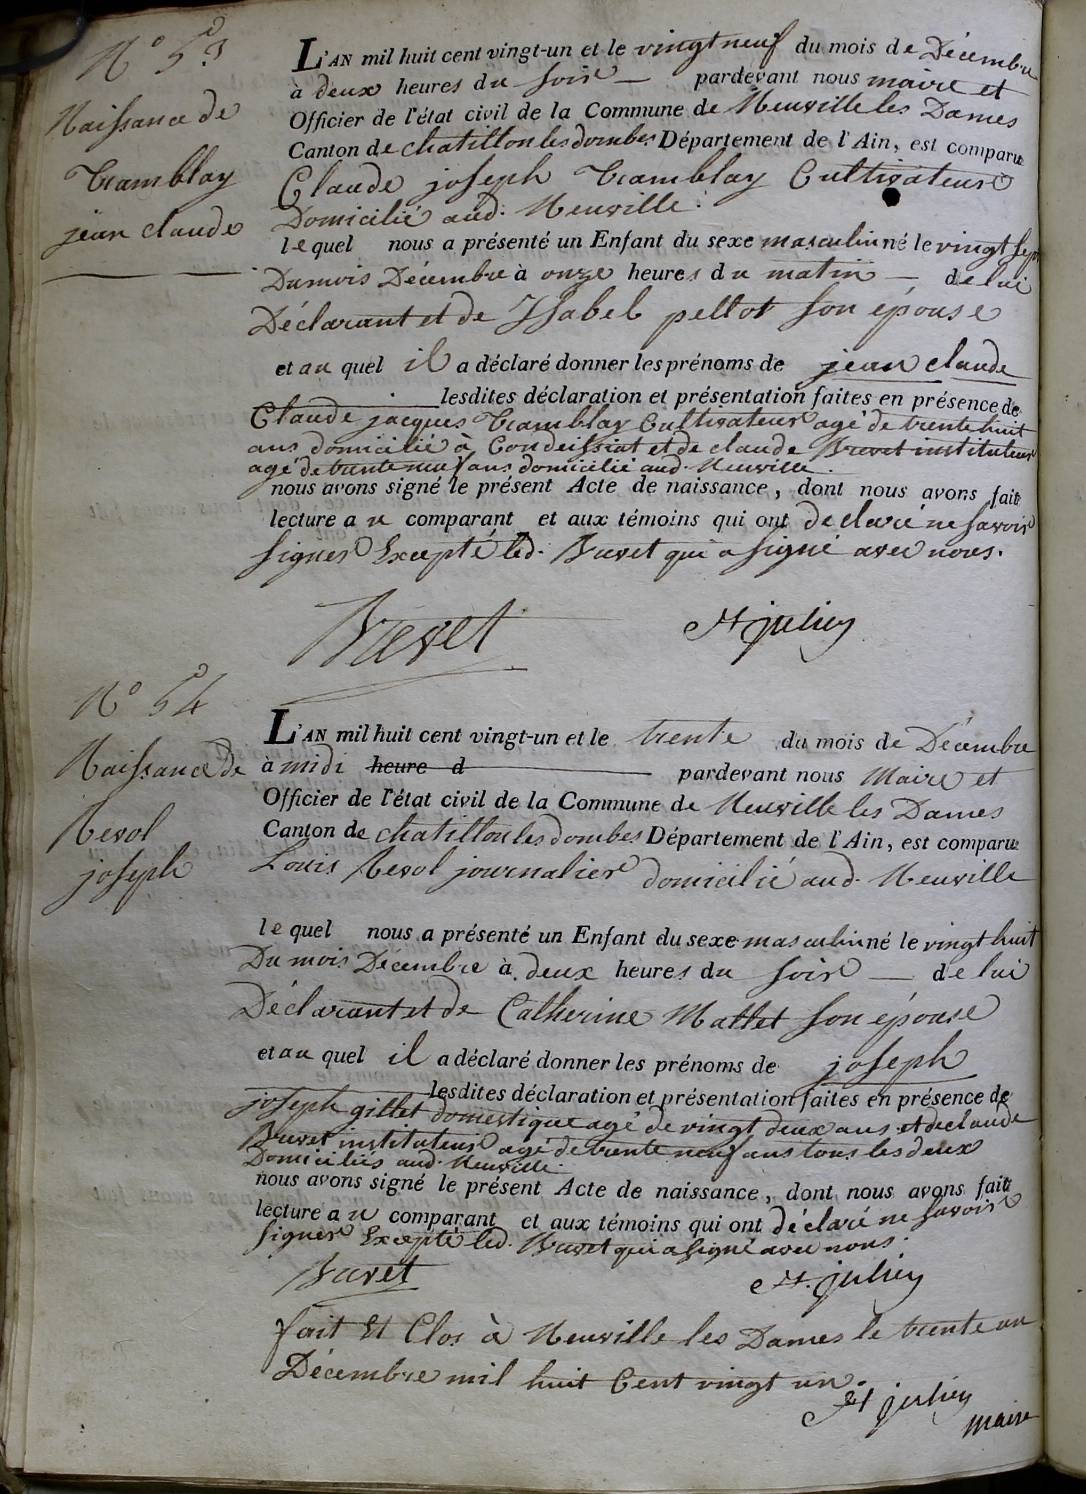 N° 53
Naissance de
Tramblay
jean claude
L'AN mil huit cent vingt-un et le vingt neuf du mois de Décembre
à deux heures du soir pardevant nous maire et
Officier de l'état civil de la Commune de Neuville les Dames
Canton de chatillon les dombes Département de l'Ain, est comparu
Claude joseph Tramblay Cultivateur
Domicilié aud. Neuville.
le quel nous a présenté un Enfant du sexe masculin né le vingt sept
Du mois Décembre à onze heures du matin de lui
Déclarant et de Isabel pellot son épouse
et au quel il a déclaré donner les prénoms de jean claude
lesdites déclaration et présentation faites en présence de
Claude jacques Tramblay Cultivateur agé de trente huit
ans domicilié à Condeissiat et de claude Buvet instituteur
agé de trente neuf ans domicilié aud. Neuville.
nous avons signé le présent Acte de naissance, dont nous avons fait
lecture au comparant et aux témoins qui ont declaré ne savoir
signer Excepté led. Buvet qui a signé avec nous.
Buvet St julien
N° 54
Naissance de
Revol
joseph
L'AN mil huit cent vingt-un et le trente du mois de Décembre
à midi heure d pardevant nous Maire et
Officier de l'état civil de la Commune de Neuville les Dames
Canton de chatillon les dombes Département de l'Ain, est comparu
Louis Revol journalier domicilié aud. Neuville
le quel nous a présenté un Enfant du sexe masculin né le vingt huit
Du mois Décembre à deux heures du soir de lui
Déclarant et de Catherine Mallet son épouse
et au quel il a déclaré donner les prénoms de joseph
lesdites déclaration et présentation faites en présence de
joseph gillet domestique agé de vingt deux ans et de claude
Buvet instituteur agé de trente neuf ans tous les deux
Domiciliés aud. Neuville.
nous avons signé le présent Acte de naissance, dont nous avons fait
lecture au comparant et aux témoins qui ont déclaré ne savoir
signer Excepté led. Buvet qui a signé avec nous.
Buvet St. julien
fait Et Clos à Neuville les Dames le trente un
Décembre mil huit Cent vingt un.
St julien
maire